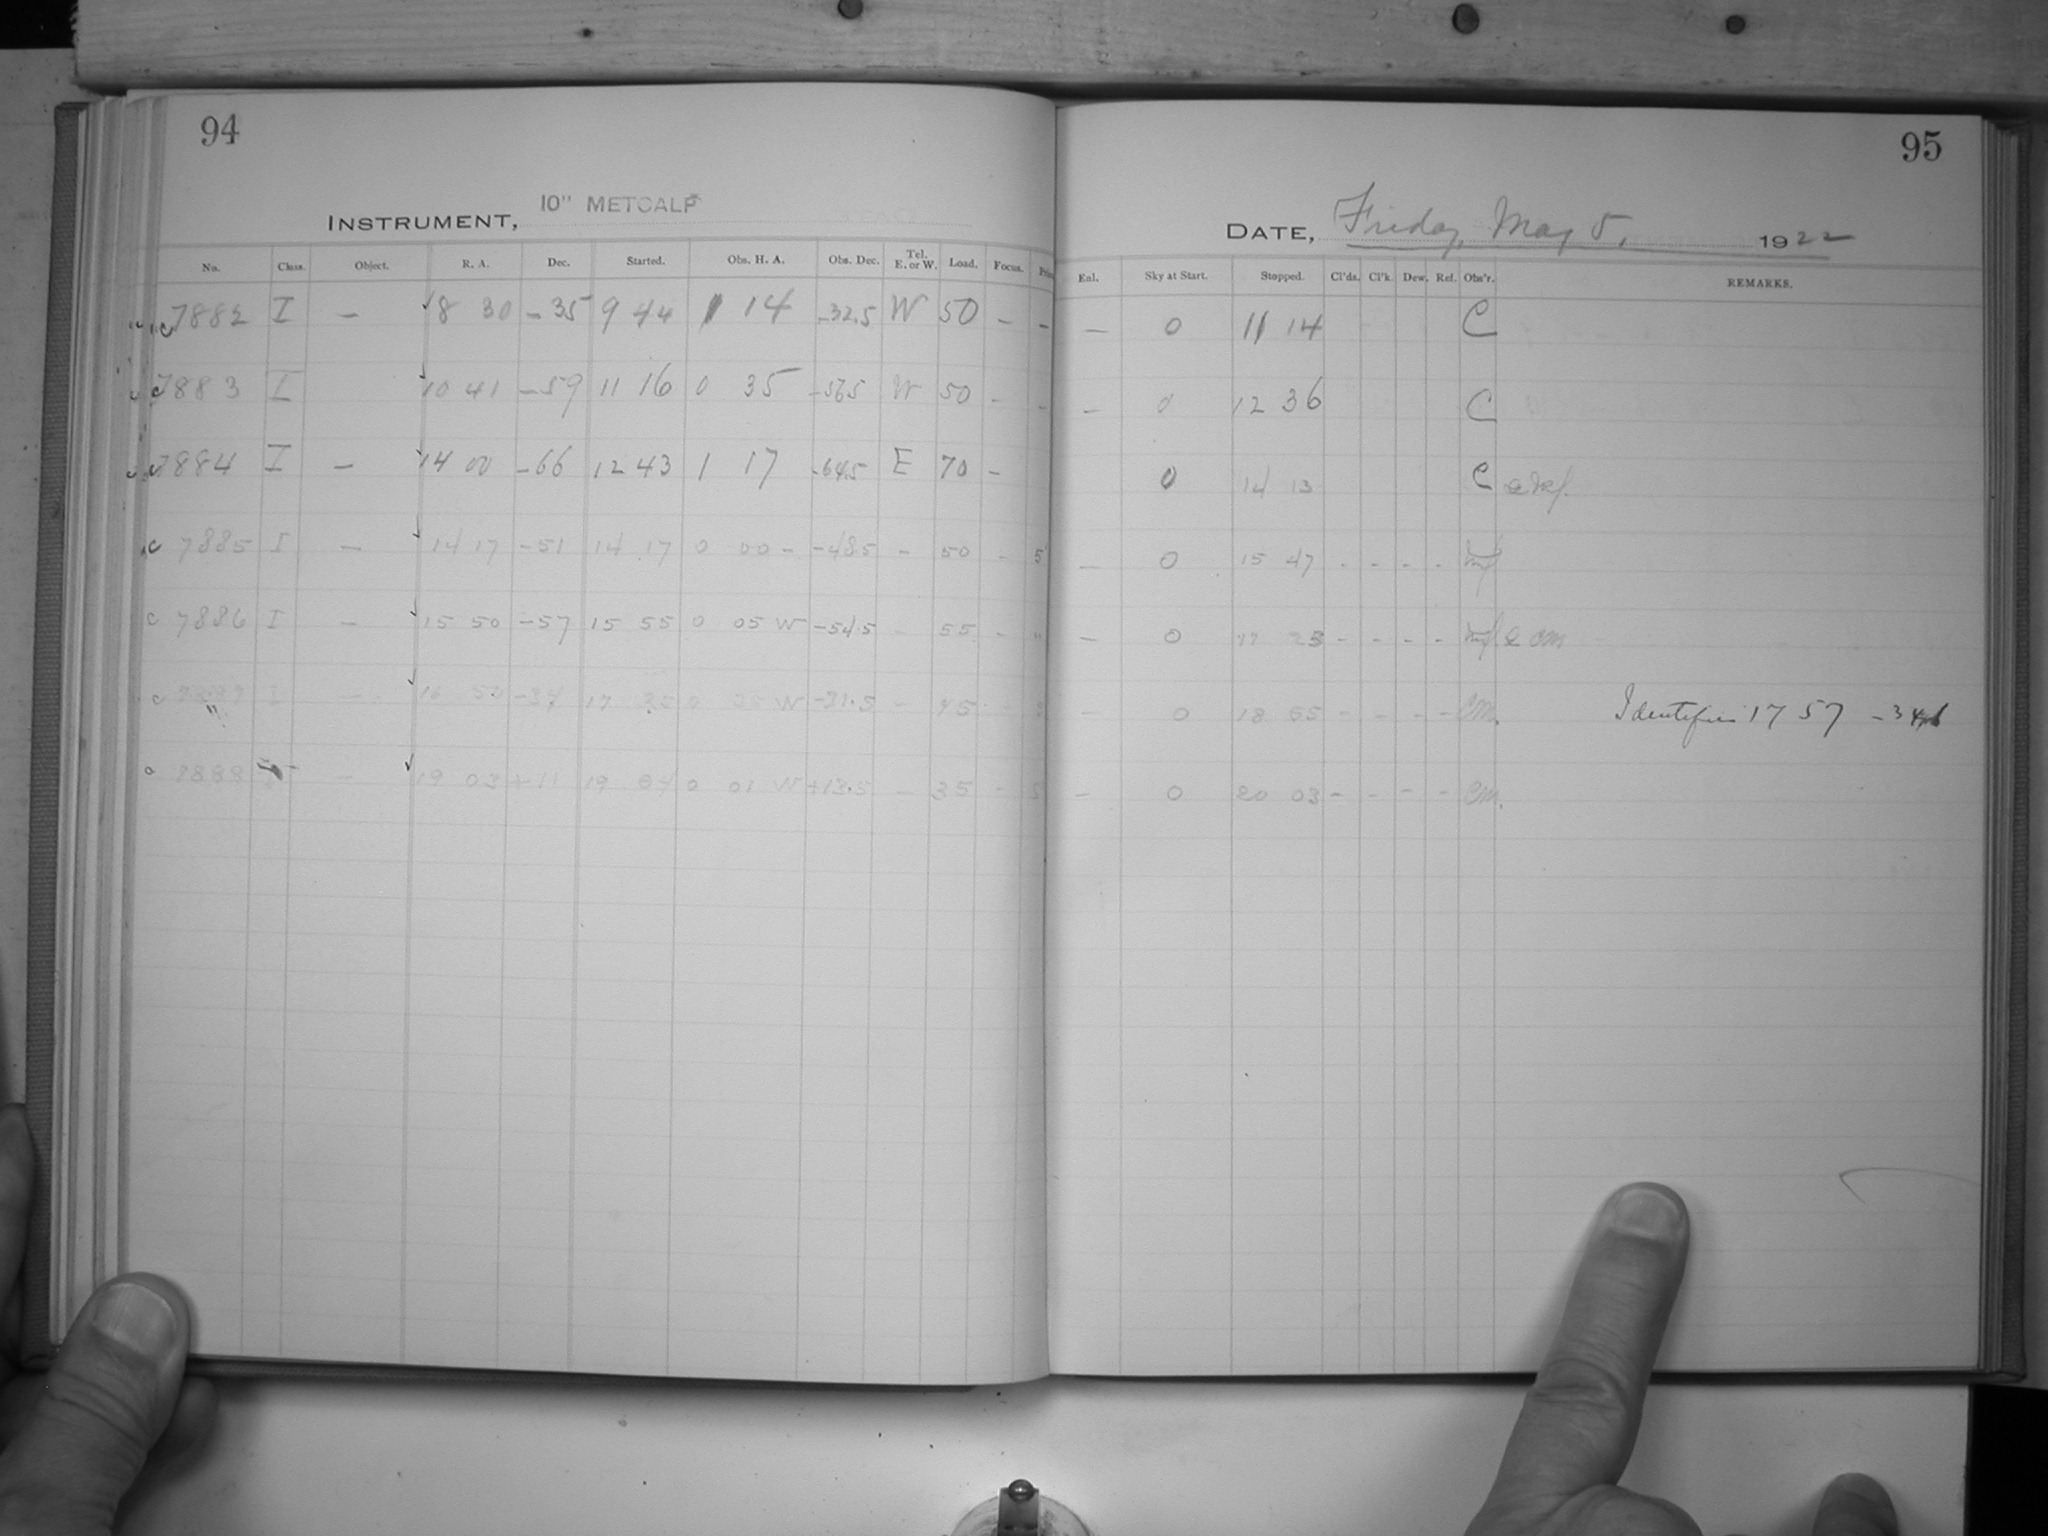 94
INSTRUMENT, 10" METCALF
No. Class. Object. R. A. Dec. Started. Obs. H. A. Obs. Dec. Tel. E. or W. Load. Focus.
7882 I — 8 30 -35 9 44 1 14 -32.5 W 50 - -
7883 I 10 41 -59 11 16 0 35 -56.5 W 50 - -
7884 I — 14 00 -66 12 43 1 17 -64.5 E 70 -
c 7885 I — 14 17 -51 14 17 0 00 - -48.5 - 50 - 5
c 7886 I — 15 50 -57 15 55 0 05 W -54.5 - 55 - "
c 7887 I — 16 50 -34 17 25 0 35 W -31.5 - 45
7888 — 19 03 +11 19 04 0 01 W +13.5 — 35 - 5
95
DATE, Friday, May 5, 1922
Enl. Sky at Start. Stopped. Cl'ds. Cl'k. Dew. Ref. Obs'r. REMARKS.
— 0 11 14 C
— 0 12 36 C
0 14 13 C
— 0 15 47 - - - -
— 0 17 23 - - - - & CM
— 0 18 55 - - - - CM. Identifies 17 57 -34
— 0 20 03 - - - - CM.